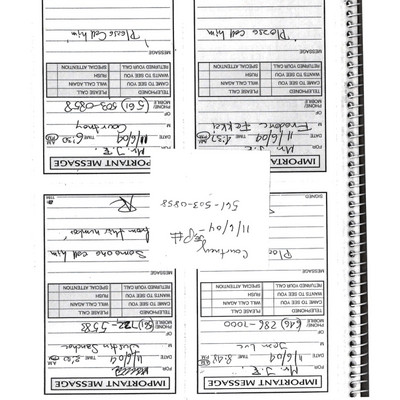 IMPORTANT MESSAGE
Mr. J.E.
DATE 11/6/04 TIME 8:48 AM
M Jean Luc
OF
PHONE
MOBILE (646) 286-7000
TELEPHONED PLEASE CALL
CAME TO SEE YOU WILL CALL AGAIN
WANTS TO SEE YOU RUSH
RETURNED YOUR CALL SPECIAL ATTENTION
MESSAGE
SIGNED
IMPORTANT MESSAGE
DATE 11/6/04 TIME 3:50
M Justin
OF
PHONE
MOBILE 722-5588
TELEPHONED PLEASE CALL
CAME TO SEE YOU WILL CALL AGAIN
WANTS TO SEE YOU RUSH
RETURNED YOUR CALL SPECIAL ATTENTION
MESSAGE
Someone call him
from this number
Courtney
11/6/04
561-503-0858
IMPORTANT MESSAGE
Mr. J.E.
DATE 11/6/04 TIME 4:57
M Fekkai
OF
PHONE
MOBILE
TELEPHONED PLEASE CALL
CAME TO SEE YOU WILL CALL AGAIN
WANTS TO SEE YOU RUSH
RETURNED YOUR CALL SPECIAL ATTENTION
MESSAGE
"Please call him"
IMPORTANT MESSAGE
Mr. J.E.
DATE 11/6/04 TIME 6:30
M Courtney
OF
PHONE
MOBILE (561) 503-0858
TELEPHONED PLEASE CALL
CAME TO SEE YOU WILL CALL AGAIN
WANTS TO SEE YOU RUSH
RETURNED YOUR CALL SPECIAL ATTENTION
MESSAGE
"Please call him"